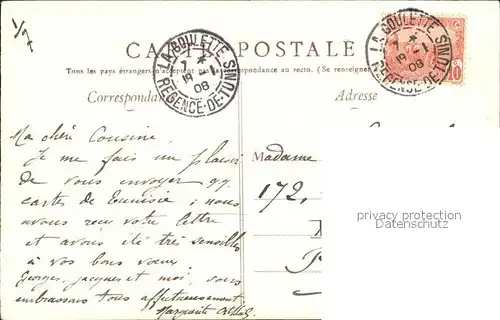 1/7
CARTE POSTALE
Tous les pays étrangers n'acceptent pas la correspondance au recto. (Se renseigner
Correspondance
Adresse
LA GOULETTE
7 * 1
19
08
REGENCE-DE-TUNIS
LA GOULETTE
7 * 1
19
08
REGENCE-DE-TUNIS
10
Ma chèri Cousine,
Je me fais un plaisir
de vous envoyer qq.
cartes de Tunisie ; nous
avons reçu votre lettre
et avons été très sensibles
à vos bons vœux
Georges, Jacques et moi, vous
embrassons tous affectueusement
Marguerite
Madame
172,
privacy protection
Datenschutz